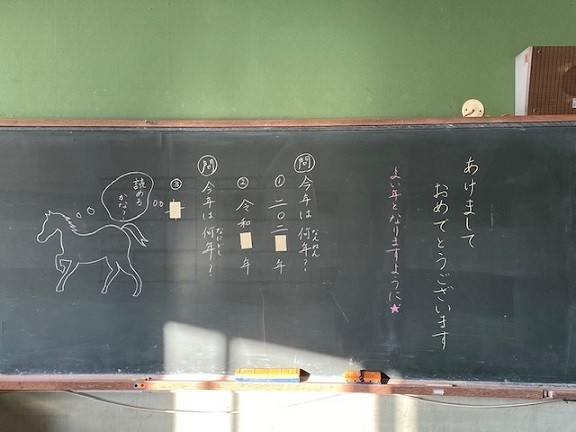 あけまして
おめでとうございます
よい年となりますように★
問 今年は何年?
なんねん
① 二〇二 年
② 令和 年
問 今年は何年?
なにどし
③
読める
かな?